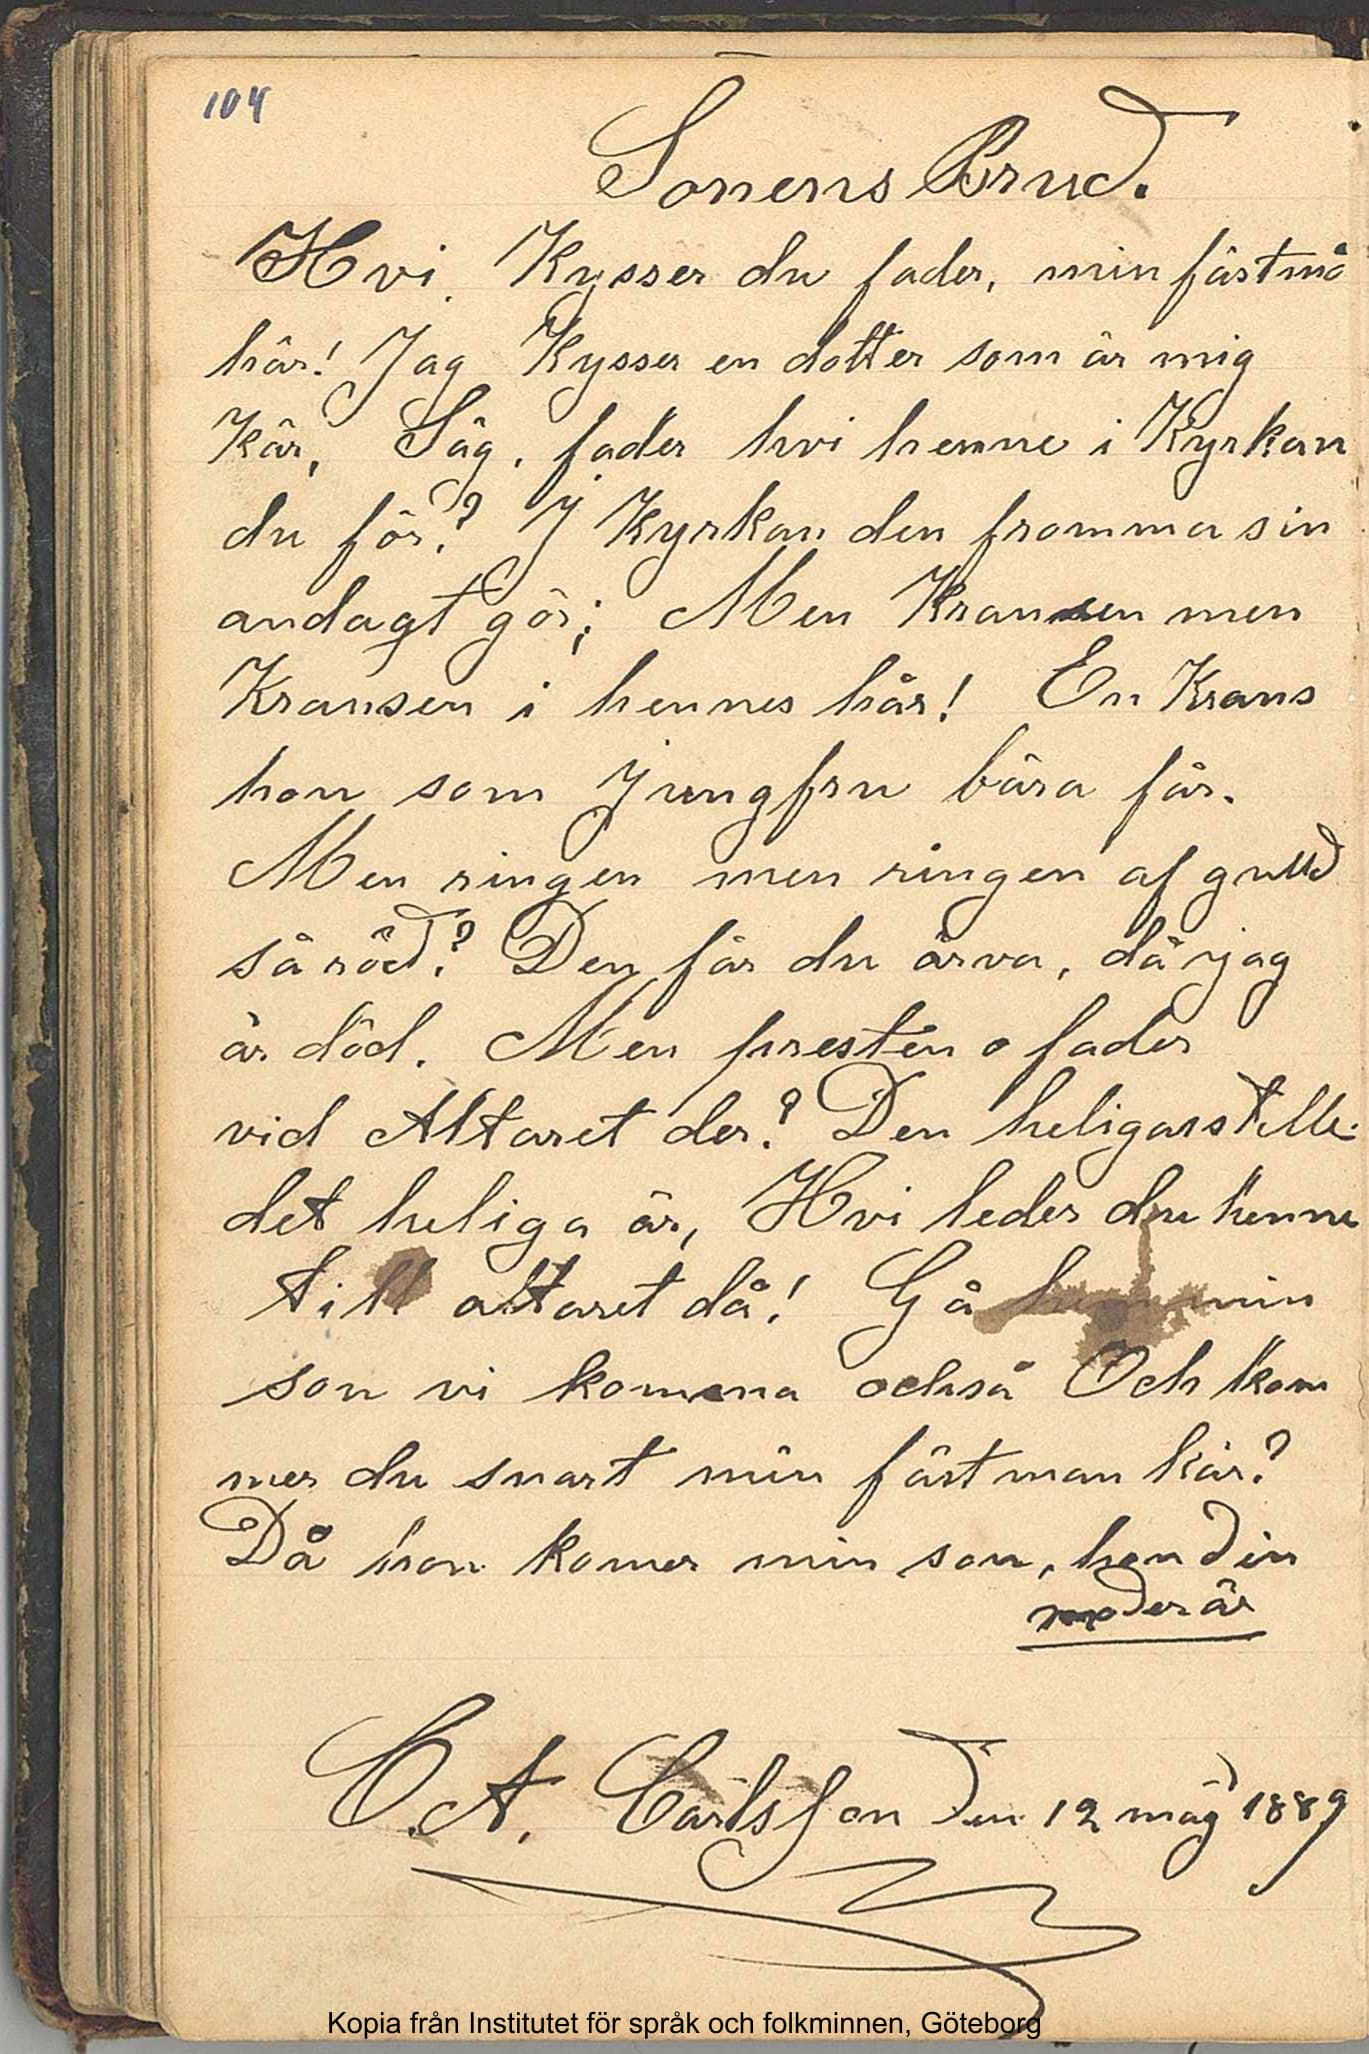 104
Sonens Brud.
Hvi Kysser du fader, min fästmö
här! Jag Kysser en dotter som är mig
Kär, Säg, fader hvi henne i Kyrkan
du för? J Kyrkan den fromma sin
andagt gör; Men Kransen men
Kransen i hennes hår! En Krans
hon som Jungfru bära får.
Men ringen men ringen af gulld
så röd? Den får du ärva, då jag
är död. Men presten o fader
vid Altaret der? Den heligas ställe
det heliga är, Hvi leder du henne
till altaret då! Gå min
son vi komma också Och kom
mer du snart min fästman kär?
Då hon komer min son, hon din
moder är
C. A. Carlsson den 12 maj 1889
Kopia från Institutet för språk och folkminnen, Göteborg